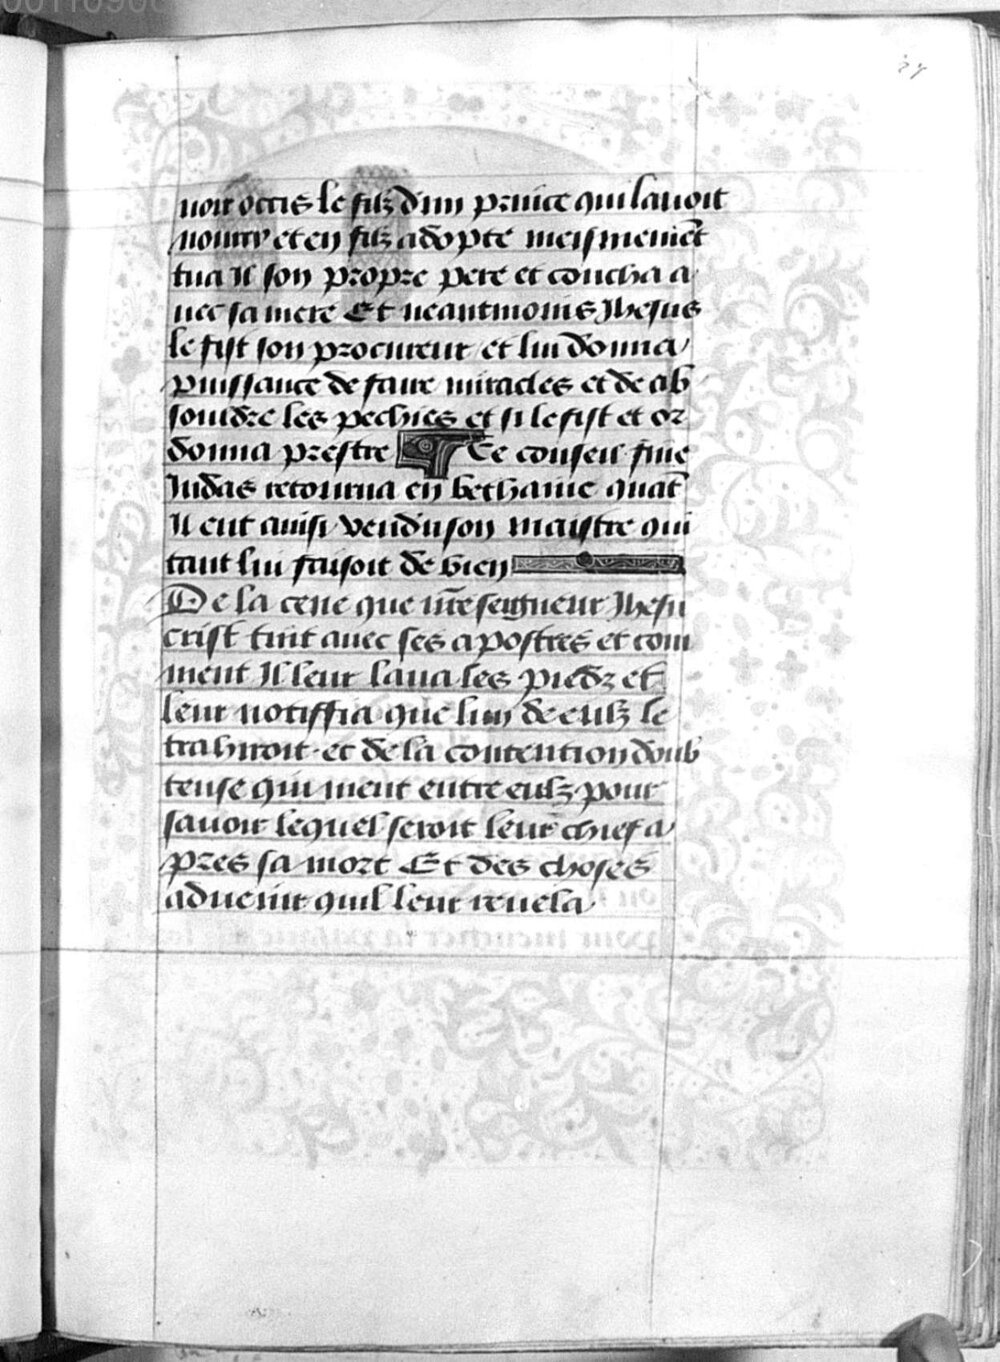 uoir occis le filz dun prince qui lauoit
nourry et en filz adopte meismemēt
tua Il son propre pere et coucha a
uec sa mere Et neantmoins Jhesus
le fist son procureur et lui donna
puissance de faire miracles et de ab
souldre les pechies et si le fist et or
donna prestre Ce conseil fine
Iudas retourna en bethanie quāt
Il eut ainsi vendu son maistre qui
tant lui faisoit de bien
De la cene que nr̄e seigneur Jhesu
crist tint auec ses apostres et com
ment Il leur laua les piedz et
leur notiffia que lun de eulz le
trahiroit et de la contention doub
teuse qui meut entre eulz pour
sauoir lequel seroit leur chief a
pres sa mort Et des choses
aduenir quil leur reuela